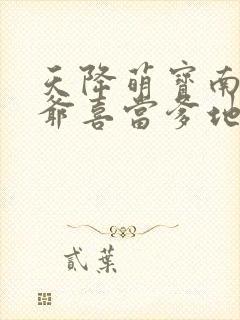 天降萌寶南
爺喜當爹地
貳葉